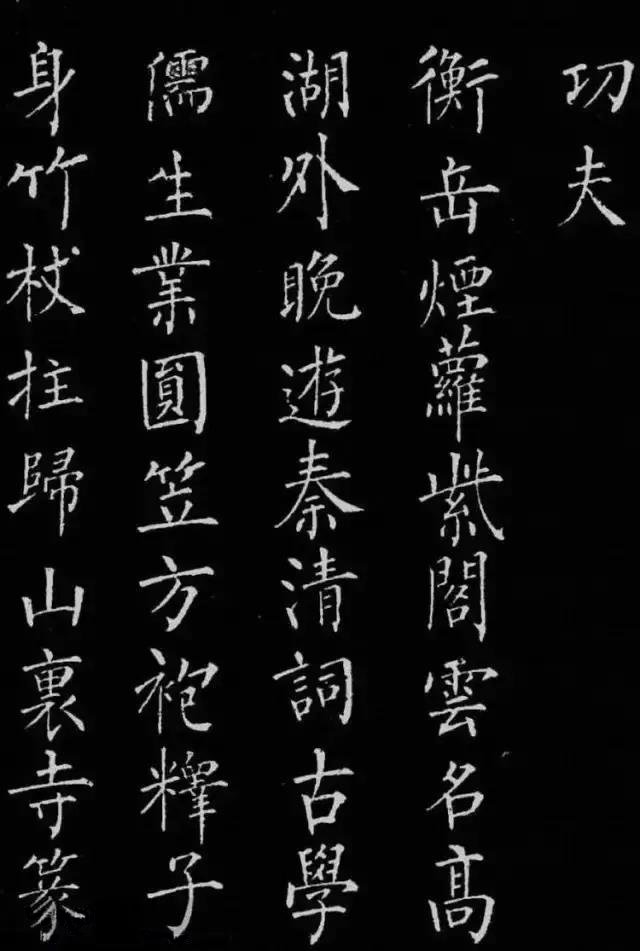 功夫
衡岳煙蘿紫閣雲名高
湖外晚遊秦清詞古學
儒生業圓笠方袍釋子
身竹杖拄歸山裏寺篆